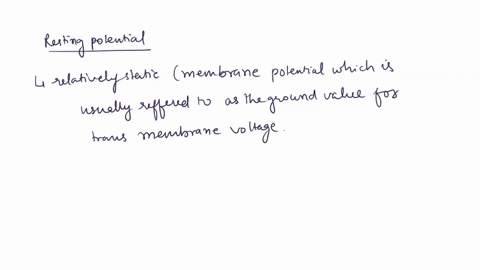 Resting potential
↳ relatively static (membrane potential which is
usually reffered to as the ground value for
trans membrane voltage.